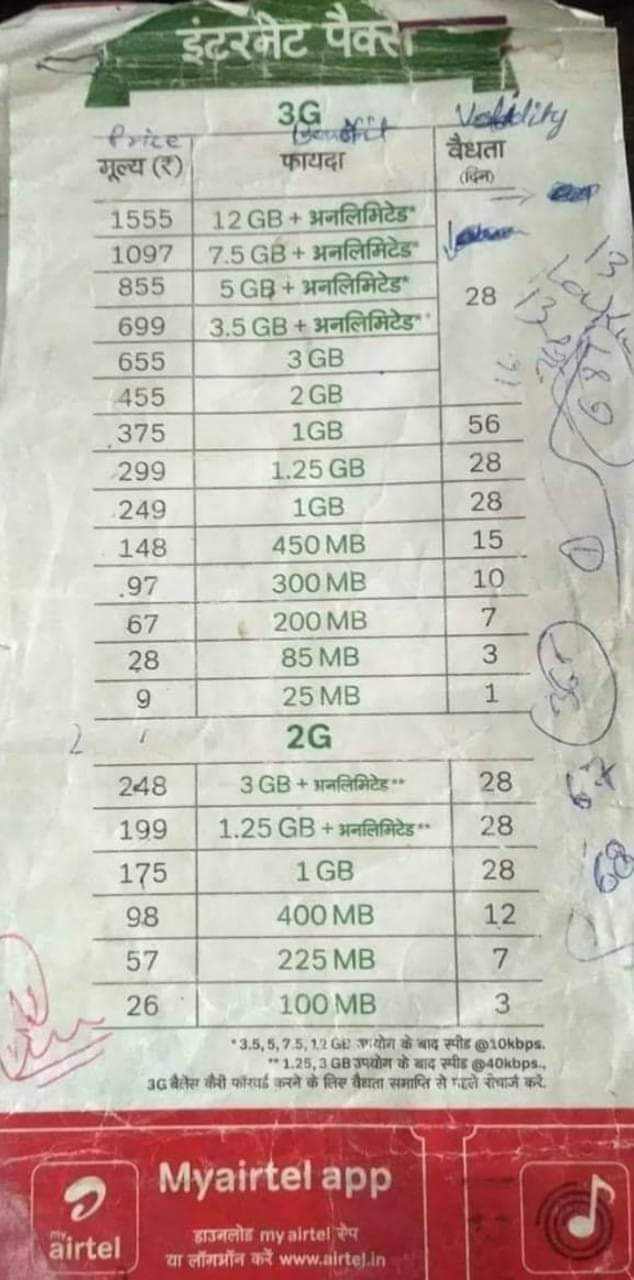 इंटरनेट पैक्स
3G
Price Benefit Validity
मूल्य (₹) फायदा वैधता
(दिन)
1555 12 GB + अनलिमिटेड*
1097 7.5 GB + अनलिमिटेड*
855 5 GB + अनलिमिटेड* 28
699 3.5 GB + अनलिमिटेड*
655 3 GB
455 2 GB
375 1GB 56
299 1.25 GB 28
249 1GB 28
148 450 MB 15
97 300 MB 10
67 200 MB 7
28 85 MB 3
9 25 MB 1
2G
248 3 GB + अनलिमिटेड** 28
199 1.25 GB + अनलिमिटेड** 28
175 1 GB 28
98 400 MB 12
57 225 MB 7
26 100 MB 3
*3.5, 5, 7.5, 12 GB उपयोग के बाद स्पीड @10kbps.
**1.25, 3 GB उपयोग के बाद स्पीड @40kbps.,
3G बैलेंस कैरी फॉरवर्ड करने के लिए वैधता समाप्ति से पहले रीचार्ज करें.
Myairtel app
my
airtel
डाउनलोड my airtel ऐप
या लॉगऑन करें www.airtel.in